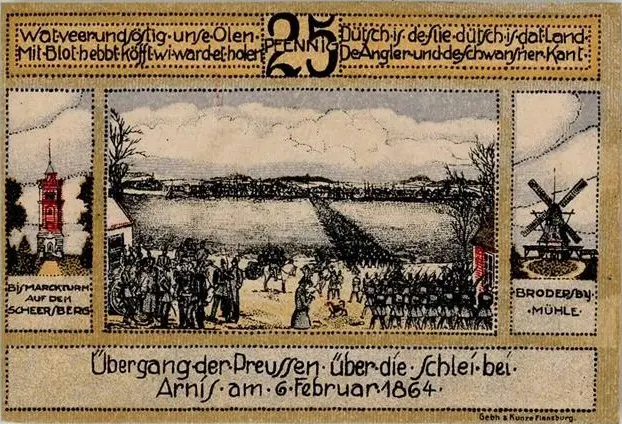 Wat·veer·und·östig·unse·Olen·
Mit·Blot·hebbt·köfft·wi·ward·et·holen
25
PFENNIG
Dütsch·is·de·Slie·dütsch·is·dat·Land·
De·Angler·und·de·Schwansner·Kant·
BISMARCKTURM
AUF DEM
SCHEERSBERG
BRODERSBY
·MÜHLE·
Übergang·der·Preussen·über·die·Schlei·bei·
Arnis·am·6·Februar·1864·
Gebh & Kunze Flensburg.